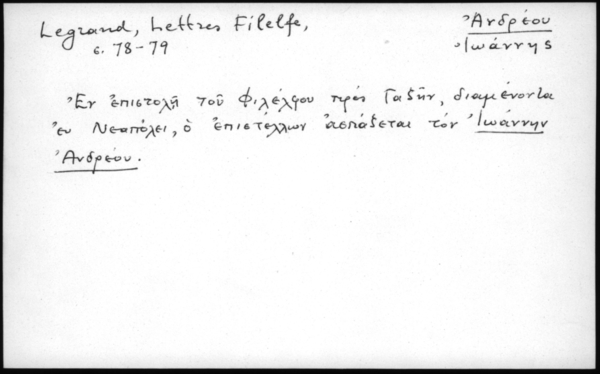 Legrand, Lettres Filelfe,
σ. 78-79
Ἀνδρέου
Ἰωάννης
Ἐν ἐπιστολῇ τοῦ Φιλέλφου πρὸς Γαζῆν, διαμένοντα
ἐν Νεαπόλει, ὁ ἐπιστέλλων ἀσπάζεται τὸν Ἰωάννην
Ἀνδρέου.